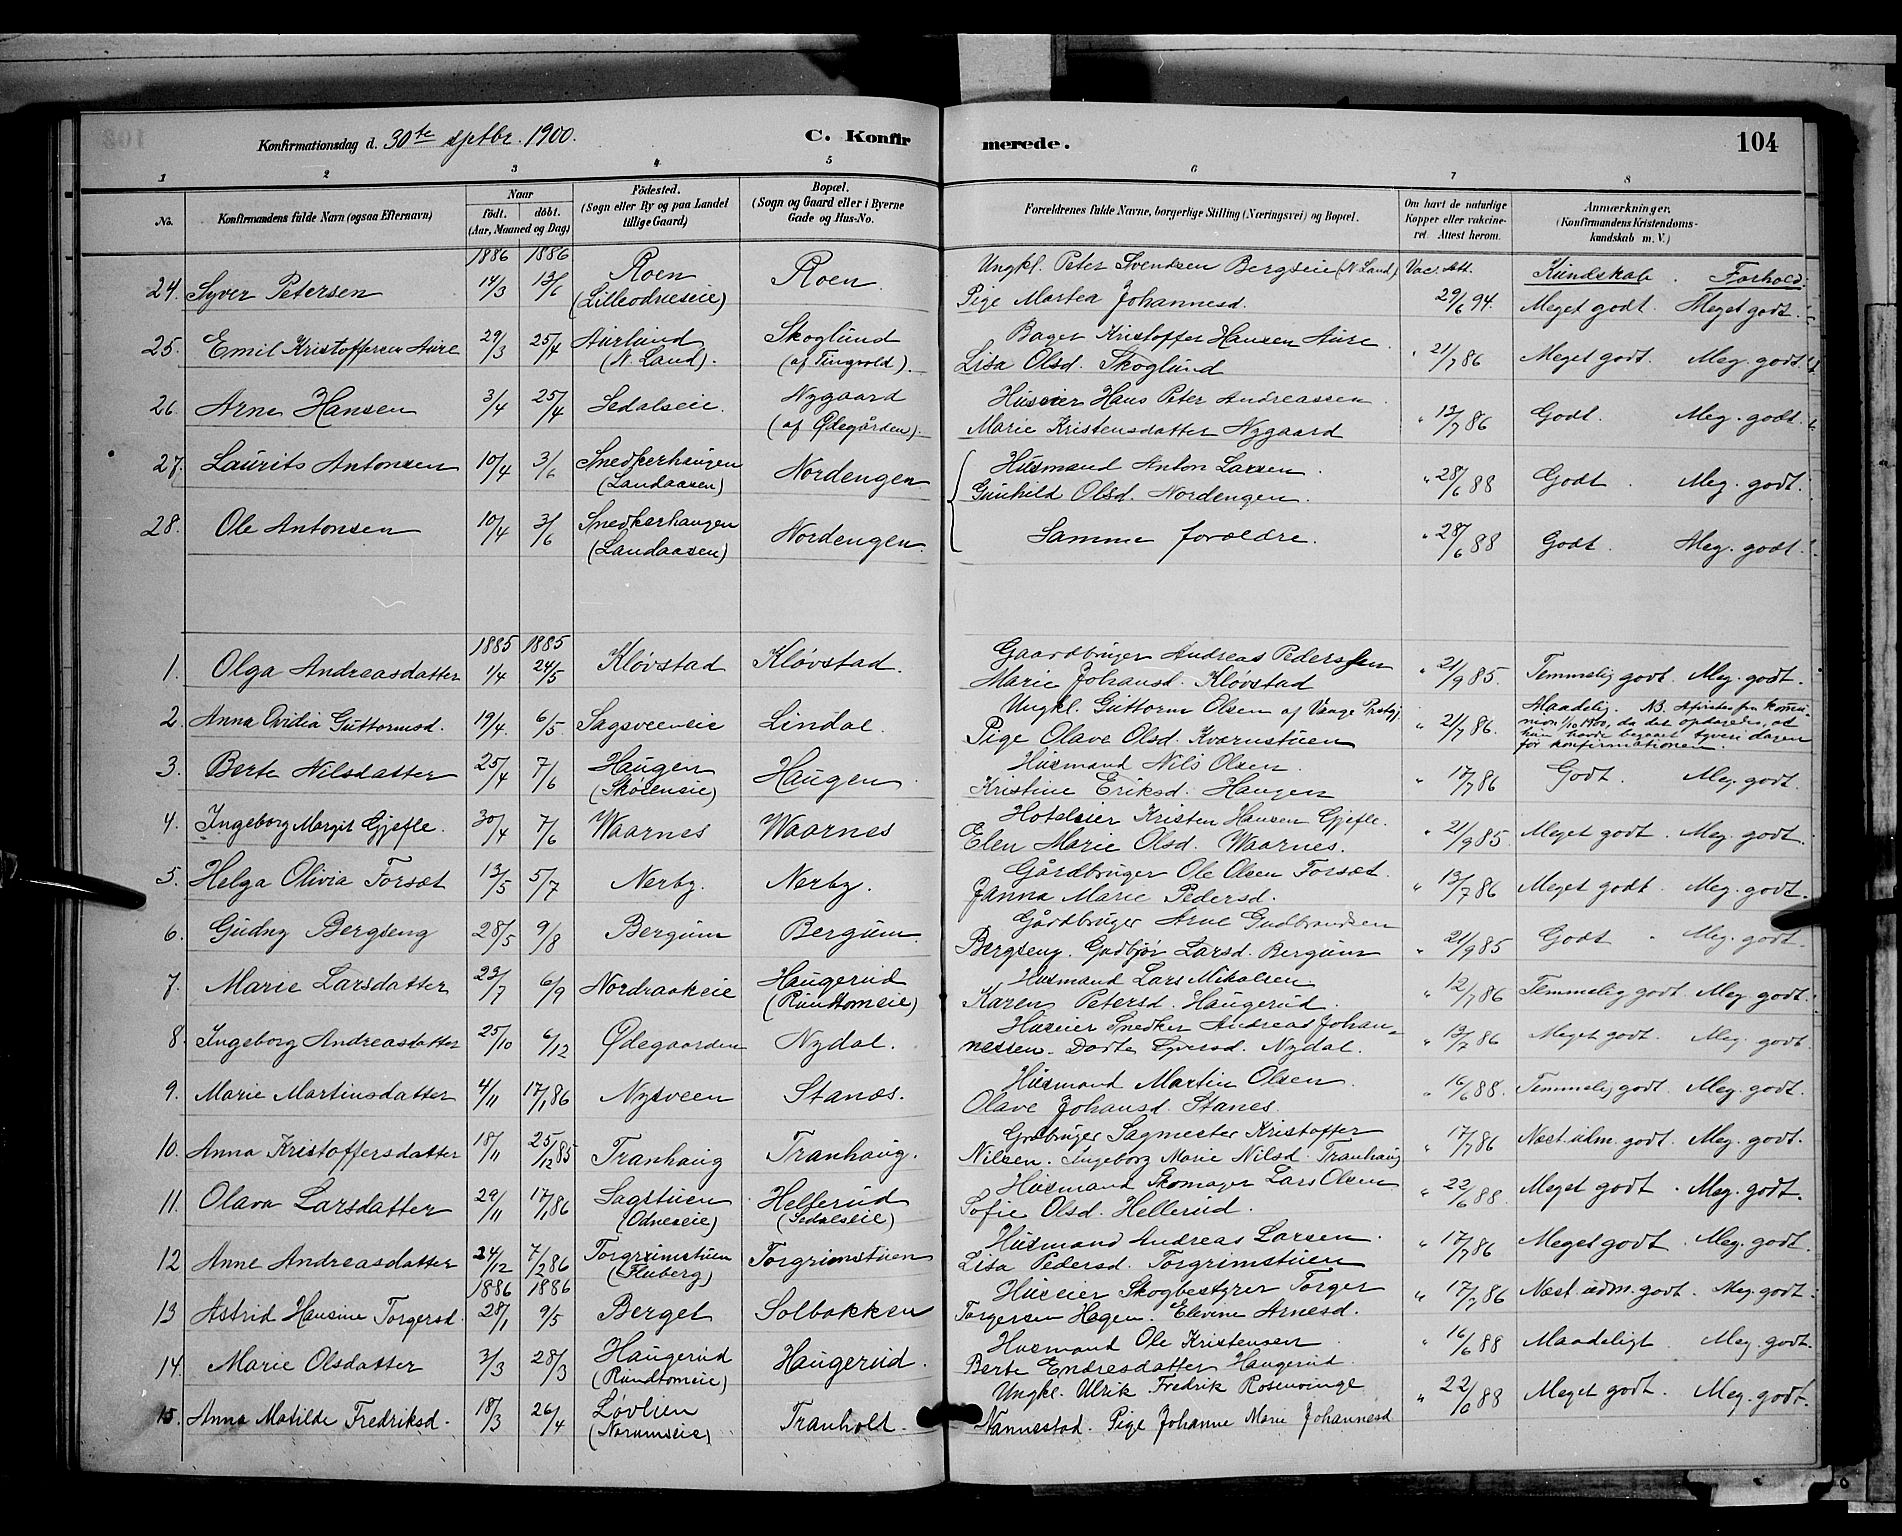 Konfirmationsdag d. 30te septbr. 1900. C. Konfirmerede. 104
1 2 3 4 5 6 7 8
No. Konfirmandens fulde Navn (ogsaa Efternavn) Naar født. døbt. (Aar, Maaned og Dag) Fødested. (Sogn eller By og paa Landet tillige Gaard) Bopæl. (Sogn og Gaard eller i Byerne Gade og Hus-No. Forældrenes fulde Navne, borgerlige Stilling (Næringsvei) og Bopæl. Om havt de naturlige Kopper eller vaccineret. Attest herom. Anmærkninger. (Konfirmandens Kristendomskundskab m. V.)
1886 1886 Vac. Att. Kundskab. Forhold:
24. Syver Petersen 14/3 13/6 Roen (Lilleodneseie) Roen. Ungkl. Peter Svendsen Bergseie (N. Land)
Pige Martea Johannesd. 29/6 94. Meget godt. Meget godt.
25. Emil Kristoffersen Aure 29/3 25/4 Aurlund (N. Land). Skoglund (af Tingvold). Bager Kristoffer Hansen Aure.
Lisa Olsd. Skoglund " 21/7 86 Meget godt. Meg. godt.
26. Arne Hansen 3/4 25/4 Sedalseie. Nygaard (af Ødegården). Huseier Hans Peter Andreassen.
Marie Kristensdatter Nygaard " 13/7 86 Godt. Meg. godt.
27. Laurits Antonsen 10/4 3/6 Snedkerhaugen (Landaasen) Nordengen Husmand Anton Larsen.
Gunhild Olsd. Nordengen. " 28/6 88 Godt. Meg. godt.
28. Ole Antonsen 10/4 3/6 Snedkerhaugen (Landaasen) Nordengen. Samme forældre. " 28/6 88 Godt. Meg. godt.
1885 1885
1. Olga Andreasdatter 1/4 24/5 Kløvstad Kløvstad. Gaardbruger Andreas Pederssen
Marie Johansd. Kløvstad " 21/9 85. Temmelig godt. Meg. godt.
2. Anna Ovidia Guttormsd. 19/4. 6/5 Sagsveeneie Lindal. Ungkl. Guttorm Olsen af Vaage Prstgj.
Pige Olave Olsd. Kvarnstuen " 21/7 86. Maadelig. NB. Afvistes fra kommunion 1/10 1900, da det opdagedes, at hun havde begaaet tyveri dagen før konfirmationen.
3. Berte Nilsdatter 25/4 7/6 Haugen (Skøienseie) Haugen. Husmand Nils Olsen.
Kristine Eriksd. Haugen " 17/7 86 Godt. Meg. godt.
4. Ingeborg Margit Gjefle. 30/4 7/6 Waarnes Waarnes Hoteleier Kristen Hansen Gjefle.
Elen Marie Olsd. Waarnes. " 21/9 85. Meget godt. Meg. godt.
5. Helga Olivia Forsæt 13/5 5/7 Nerby. Nerby. Gårdbruger Ole Olsen Forsæt.
Janna Marie Pedersd. " 13/7 86 Meget godt. Meg. godt.
6. Gudny Bergseng 28/5 9/8 Bergum Bergum. Gårdbruger Arne Gudbrandsen
Bergseng. Gudbjør Larsd. Bergum " 21/9 85 Godt. Meg. godt.
7. Marie Larsdatter 23/7 6/9 Nordraakeie Haugerud (Rundtomeie) Husmand Lars Mikalsen
Karen Petersd. Haugerud. " 12/7 86 Temmelig godt. Meg. godt.
8. Ingeborg Andreasdatter 25/10 6/12 Ødegaarden Nydal. Huseier Snedker Andreas Johannessen. Dorte Syversd. Nydal. " 13/7 86 Meget godt. Meg. godt.
9. Marie Martinsdatter 4/11 17/1 86 Nysveen Stanæs. Husmand Martin Olsen.
Olave Johansd. Stanes. " 16/6 88. Temmelig godt. Meg. godt.
10. Anna Kristoffersdatter 18/11 25/12 85 Tranhaug Tranhaug. Grdbruger Sagmester Kristoffer
Nilsen. Ingeborg Marie Nilsd. Tranhaug " 17/7 86 Næst. udm. godt. Meg. godt.
11. Olava Larsdatter 29/11 17/1 86 Sagstuen (Odneseie) Hellerud (Sedalseie) Husmand Skomager Lars Olsen
Sofie Olsd. Hellerud. " 22/6 88. Meget godt. Meg. godt.
12 Anne Andreasdatter 24/12 7/2 86 Torgrimstuen (Fluberg) Torgrimstuen Husmand Andreas Larsen.
Lisa Pedersd. Torgrimstuen " 17/7 86 Meget godt. Meg. godt.
1886 1886
13 Astrid Hansine Torgersd. 28/1 9/5 Berget Solbakken Huseier Skogbestyrer Torger
Torgersen Hagen. Elevine Arnesd. " 17/7 86 Næst. udm. godt. Meg. godt.
14 Marie Olsdatter 3/3 28/3 Haugerud (Rundtomeie) Haugerud. Husmand Ole Kristensen
Berte Endresdatter Haugerud. " 16/6 88 Maadeligt Meg. godt.
15. Anna Matilde Fredriksd. 18/3 26/4 Løvlien (Norumseie) Tranholt. Ungkl. Ulrik Fredrik Rosenvinge
Nannestad. Pige Johanne Marie Johannesd " 22/6 88 Meget godt. Meg. godt.